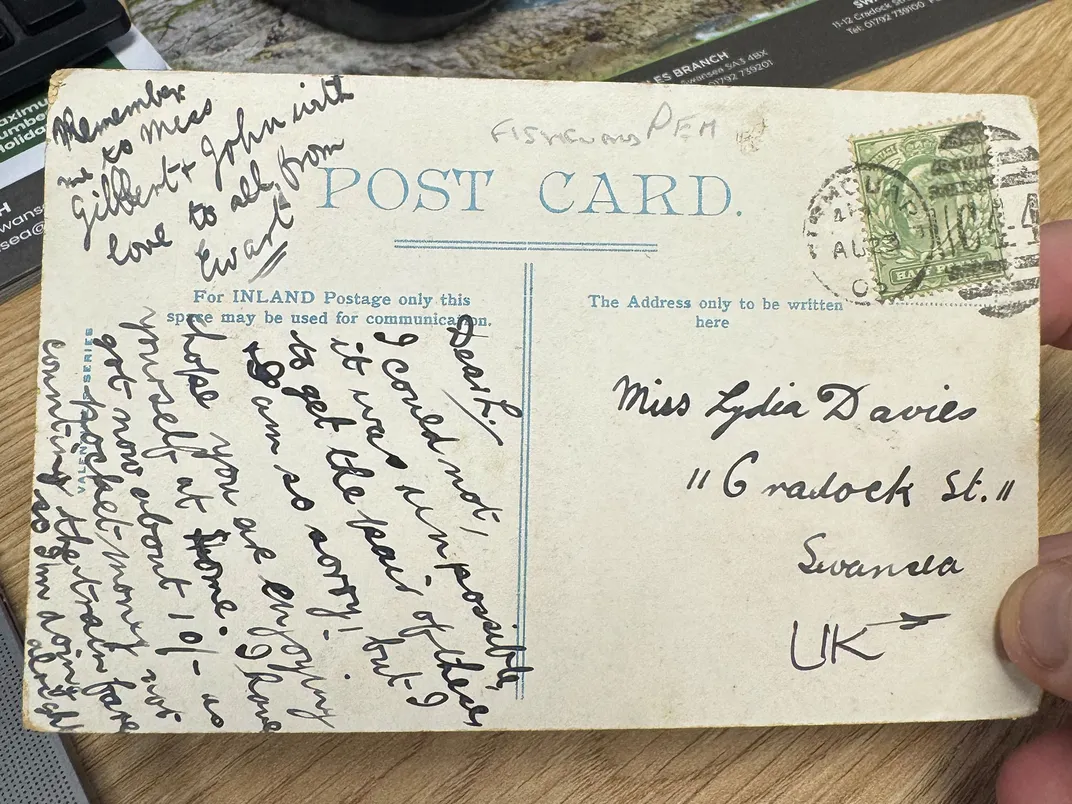 Remember
me to Miss
Gilbert + John with
love to all from
Ewart
FISHGUARD PEM
POST CARD.
AU 23
03
HALF PENNY
For INLAND Postage only this
space may be used for communication.
The Address only to be written
here
Dear L.,
I could not,
it was unpossible,
to get the pair of these,
but I
& am so sorry!
hope you are enjoying
yourself at Home. I have
got now about 10/- as
pocket-money not
counting the train fare
so I'm doing
alright
SERIES
Miss Lydia Davies
11 Cradock St.
Swansea
UK
11-12 Cradock Stre
Tel: 01792 739100
LES BRANCH
Swansea SA3 4BX
01792 739201